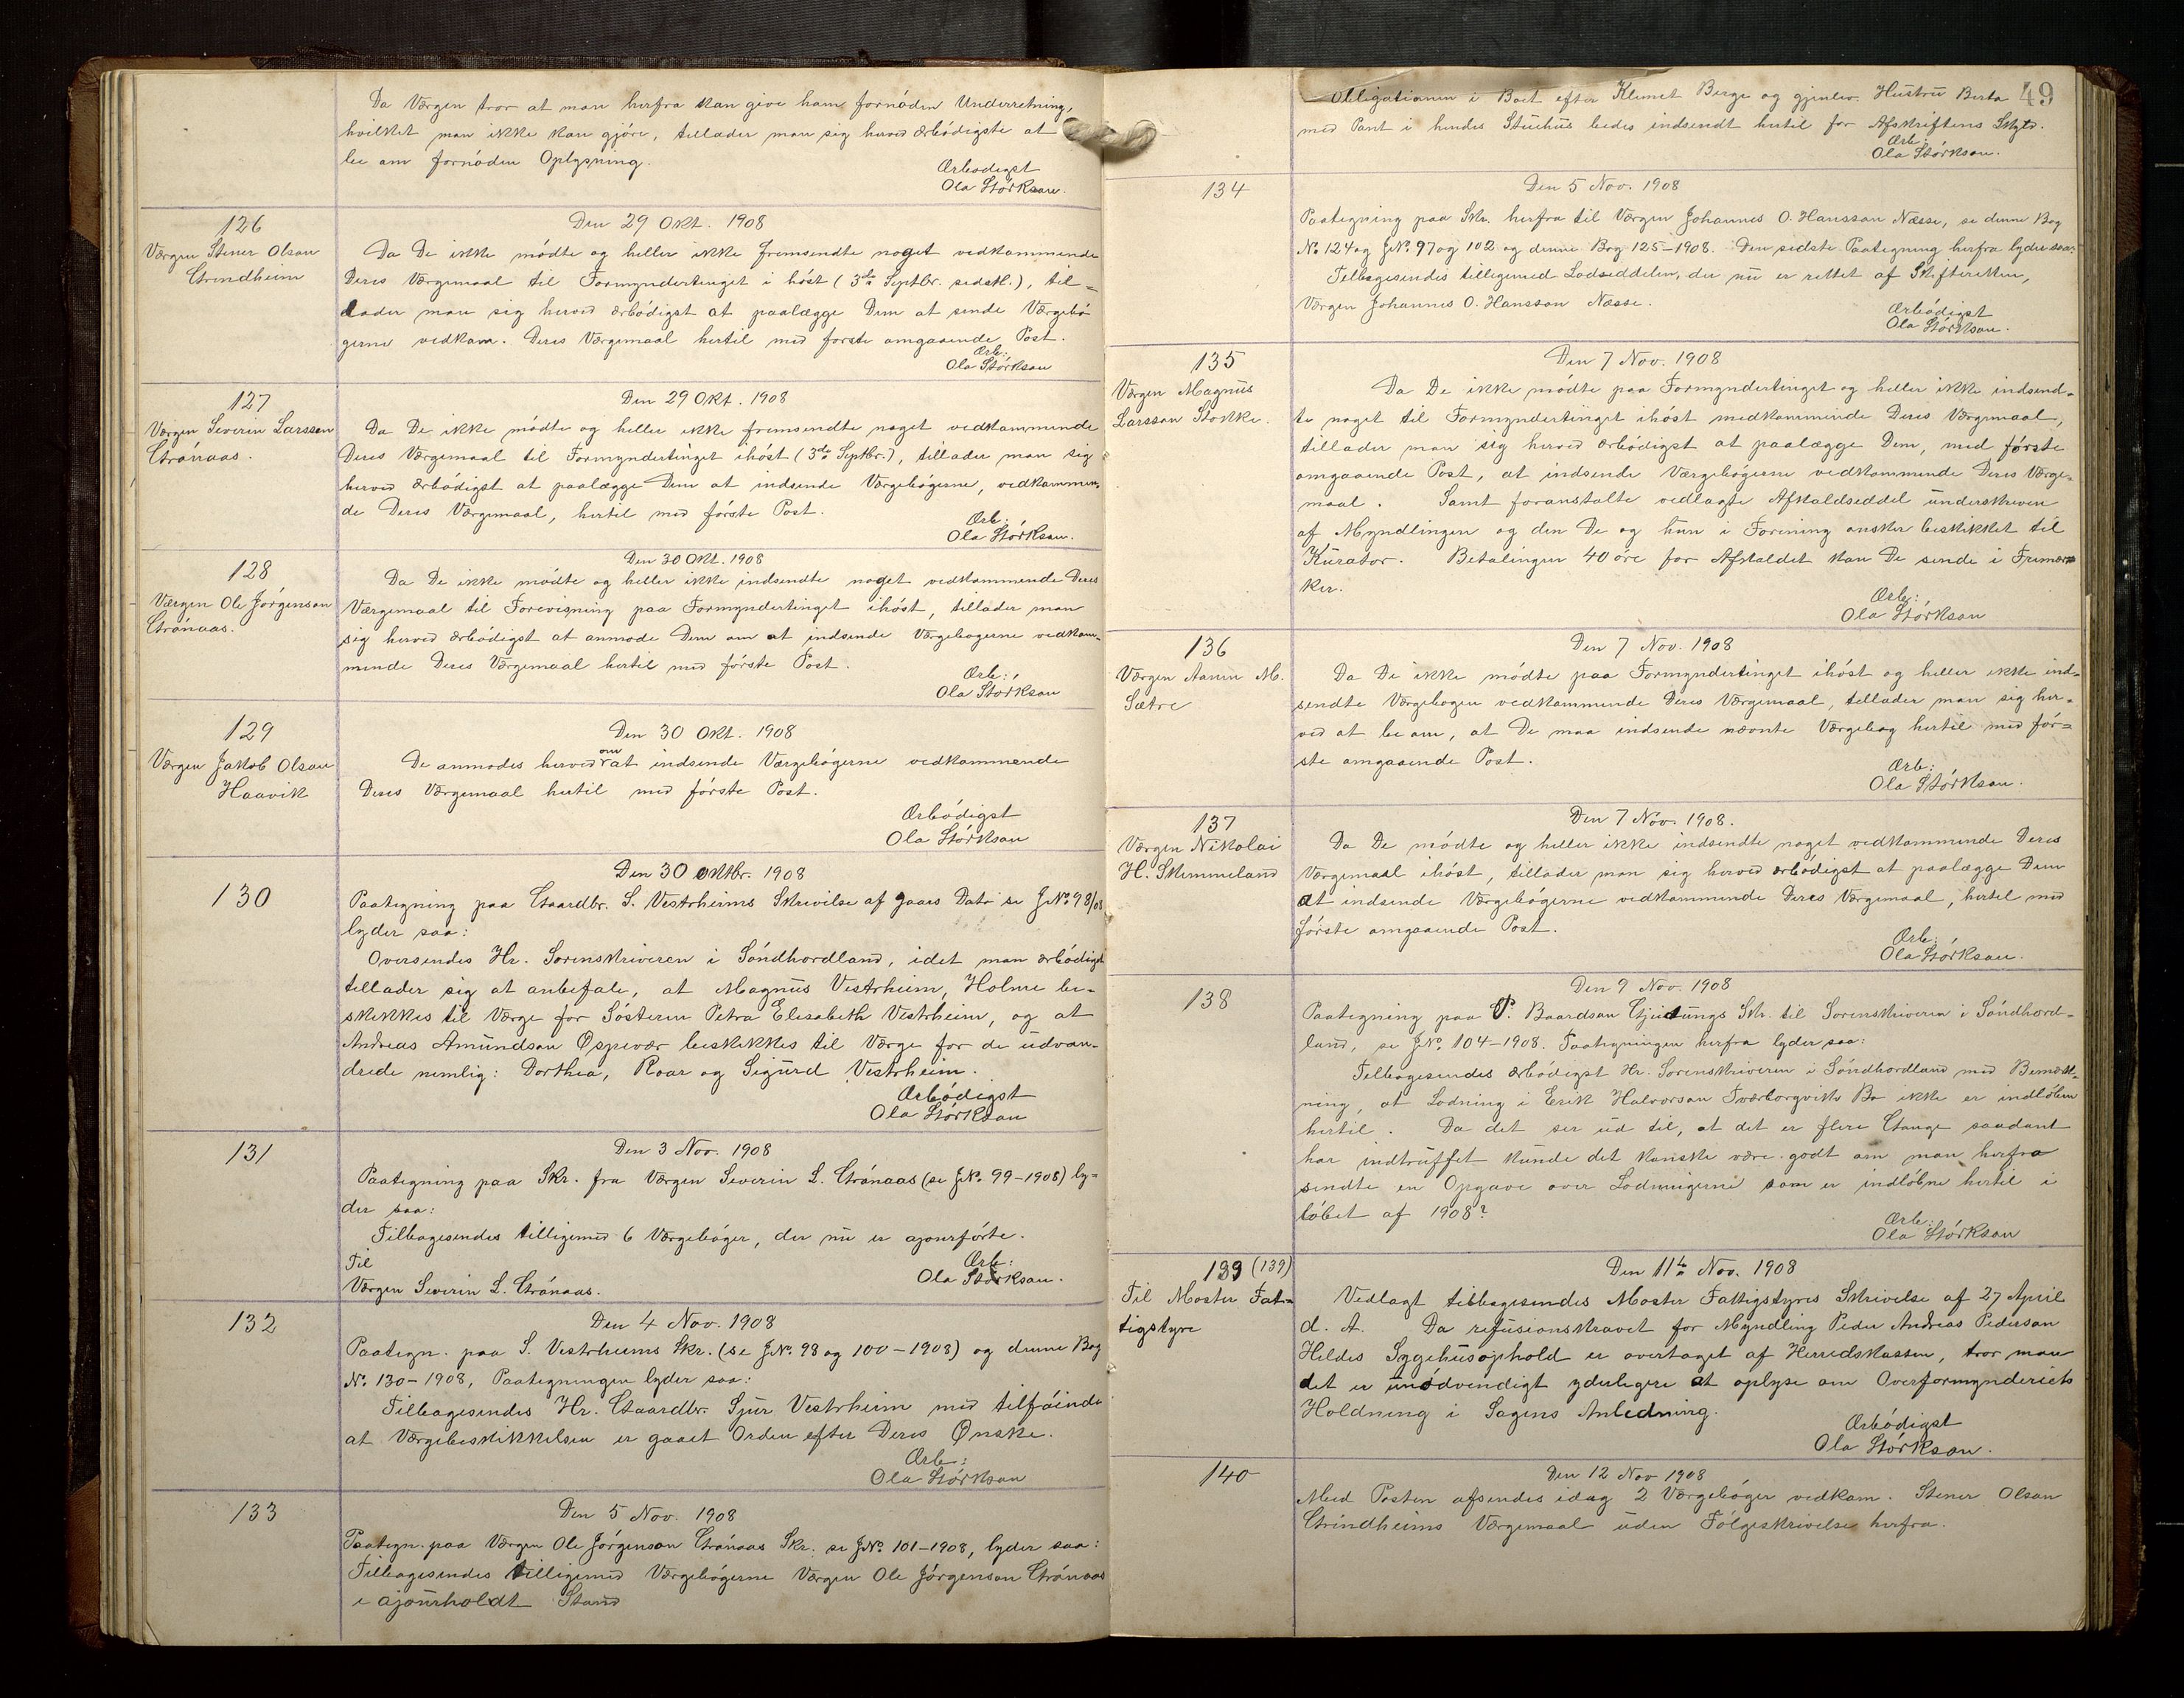 Da Værgen tror at man herfra kan give ham fornöden Underretning,
hvilket man ikke kan gjöre, tillader man sig herved ærbödigste at
be om fornöden Oplysning.
Ærbödigst
Ola Störkson.
126
Værgen Stener Olson
Grindheim
Den 29 Okt. 1908
Da De ikke mödte og heller ikke fremsendte noget vedkommende
Deres Værgemaal til Formyndertinget i höst (3die Septbr. sidstl.), til=
lader man sig herved ærbödigst at paalægge Dem at sende Værgebö
gerne vedkom. Deres Værgemaal hertil med förste omgaaende Post.
Ærb:
Ola Störkson
127
Værgen Severin Larsson
Grönaas.
Den 29 Okt. 1908
Da De ikke mödte og heller ikke fremsendte noget vedkommende
Deres Værgemaal til Formyndertinget ihöst (3die Septbr.), tillader man sig
herved ærbödigst at paalægge Dem at indsende Værgebögerne, vedkommen
de Deres Værgemaal, hertil med förste Post.
Ærb:
Ola Störkson.
128
Værgen Ole Jörgenson
Grönaas.
Den 30 Okt. 1908
Da De ikke mödte og heller ikke indsendte noget vedkommende Deres
Værgemaal til Forevisning paa Formyndertinget ihöst, tillader man
sig herved ærbödigst at anmode Dem om at indsende Værgebogerne vedkom-
mende Deres Værgemaal hertil med förste Post.
Ærb:
Ola Störkson
129
Værgen Jakob Olson
Haavik
Den 30 Okt. 1908
De anmodes herved om at indsende Værgebögerne vedkommende
Deres Værgemaal hertil med förste Post.
Ærbödigst
Ola Störkson
130
Den 30 Oktbr. 1908
Paategning paa Gaardbr. S. Vestrheims Skrivelse af gaars Dato se J.No 98/08
lyder saa:
Oversendes Hr. Sorenskriveren i Söndhordland, idet man ærbödigst
tillader sig at anbefale, at Magnus Vestrheim, Holme be-
skikkes til Værge for Sösteren Petra Elisabeth Vestrheim, og at
Andreas Amundson Øspevær beskikkes til Værge for de udvan-
drede nemlig: Dorthea, Roar og Sigurd Vestrheim.
Ærbödigst
Ola Störkson
131
Den 3 Nov. 1908
Paategning paa Skr. fra Værgen Severin L. Grönaas (se J.No. 99-1908) ly=
der saa:
Tilbagesendes tilligemed 6 Værgeböger, der nu er ajourförte.
Til
Værgen Severin L. Grönaas.
Ærb:
Ola Störkson.
132
Den 4 Nov. 1908
Paategn. paa S. Vestrheims Skr. (se J.No. 98 og 100-1908) og denne Bog
No. 130-1908, Paategningen lyder saa:
Tilbagesendes Hr. Gaardbr. Sjur Vestrheim med tilföiende
at Værgebeskikkelsen er gaaet Orden efter Deres Ønske.
Ærb:
Ola Störkson
133
Den 5 Nov. 1908
Paategn. paa Værgen Ole Jörgenson Grönaas Skr. se J.No. 101-1908, lyder saa:
Tilbagesendes tilligemed Værgebögerne Værgen Ole Jörgenson Grönaas
i ajourholdt Stand
49
Obligationen i Boet efter Klemet Berge og gjenlev. Hustru Berta
med Pant i hendes Stuehus bedes indsendt hertil for Afskriftens Skyld.
Ærb:
Ola Störkson.
134
Den 5 Nov. 1908
Paategning paa Skr. herfra til Værgen Johannes O. Hansson Næsse, se denne Bog
No. 124 og J.No. 97 og 102 og denne Bog 125-1908. Den sidste Paategning herfra lyder saa:
Tilbagesendes tilligemed Lodseddelen, der nu er rettet af Skifteretten,
Værgen Johannes O. Hansson Næsse.
Ærbödigst
Ola Störkson.
135
Værgen Magnus
Larsson Stokke.
Den 7 Nov. 1908
Da De ikke mödte paa Formyndertinget og heller ikke indsend-
te noget til Formyndertinget ihöst medkommende Deres Værgemaal,
tillader man sig herved ærbödigst at paalægge Dem, med förste
omgaaende Post, at indsende Værgebögerne vedkommende Deres Værge-
maal. Samt foranstalte vedlagte Afkaldseddel underskreven
af Myndlingen og den De og hun i Forening ønsker beskikket til
Kurator. Betalingen 40 öre for Afkaldet kan De sende i Frimær
ker.
Ærb:
Ola Störkson
136
Værgen Aamun M.
Sætre
Den 7 Nov. 1908
Da De ikke mödte paa Formyndertinget ihöst og heller ikke ind-
sendte Værgebogen vedkommende Deres Værgemaal, tillader man sig her-
ved at be om, at De maa indsende nævnte Værgebog hertil med för=
ste omgaaende Post.
Ærb:
Ola Störkson.
137
Værgen Nikolai
H. Skimmeland
Den 7 Nov. 1908.
Da De mödte og heller ikke indsendte noget vedkommende Deres
Værgemaal ihöst, tillader man sig herved ærbödigst at paalægge Dem
at indsende Værgebögerne vedkommende Deres Værgemaal, hertil med
förste omgaaende Post.
Ærb:
Ola Störkson.
138
Den 9 Nov. 1908
Paategning paa P. Baardson Gjerdungs Skr. til Sorenskriveren i Söndhord-
land, se J.No. 104-1908. Paategningen herfra lyder saa:
Tilbagesendes ærbödigst Hr. Sorenskriveren i Söndhordland med Bemærk-
ning, at Lodning i Erik Halvorson Tværborgviks Bo ikke er indlöben
hertil. Da det ser ud til, at det er flere Gange saadant
har indtruffet kunde det kanske være godt om man herfra
sendte en Opgave over Lodningerne som er indlöbne hertil i
Löbet af 1908?
Ærb:
Ola Störkson
139 (139)
Til Moster Fat-
tigstyre
Den 11te Nov. 1908
Vedlagt tilbagesendes Moster Fattigstyres Skrivelse af 27 April
d. A. Da refusionskravet for Myndling Peder Andreas Pederson
Hildes Sygehusophold er overtaget af Herredskassen, tror man
det er unødvendigt yderligere at oplyse om Overformynderiets
Holdning i Sagens Anledning.
Ærbödigst
Ola Störkson.
140
Den 12 Nov 1908
Med Posten afsendes idag 2 Værgeböger vedkom. Stener Olson
Grindheims Værgemaal uden Fölgeskrivelse herfra.